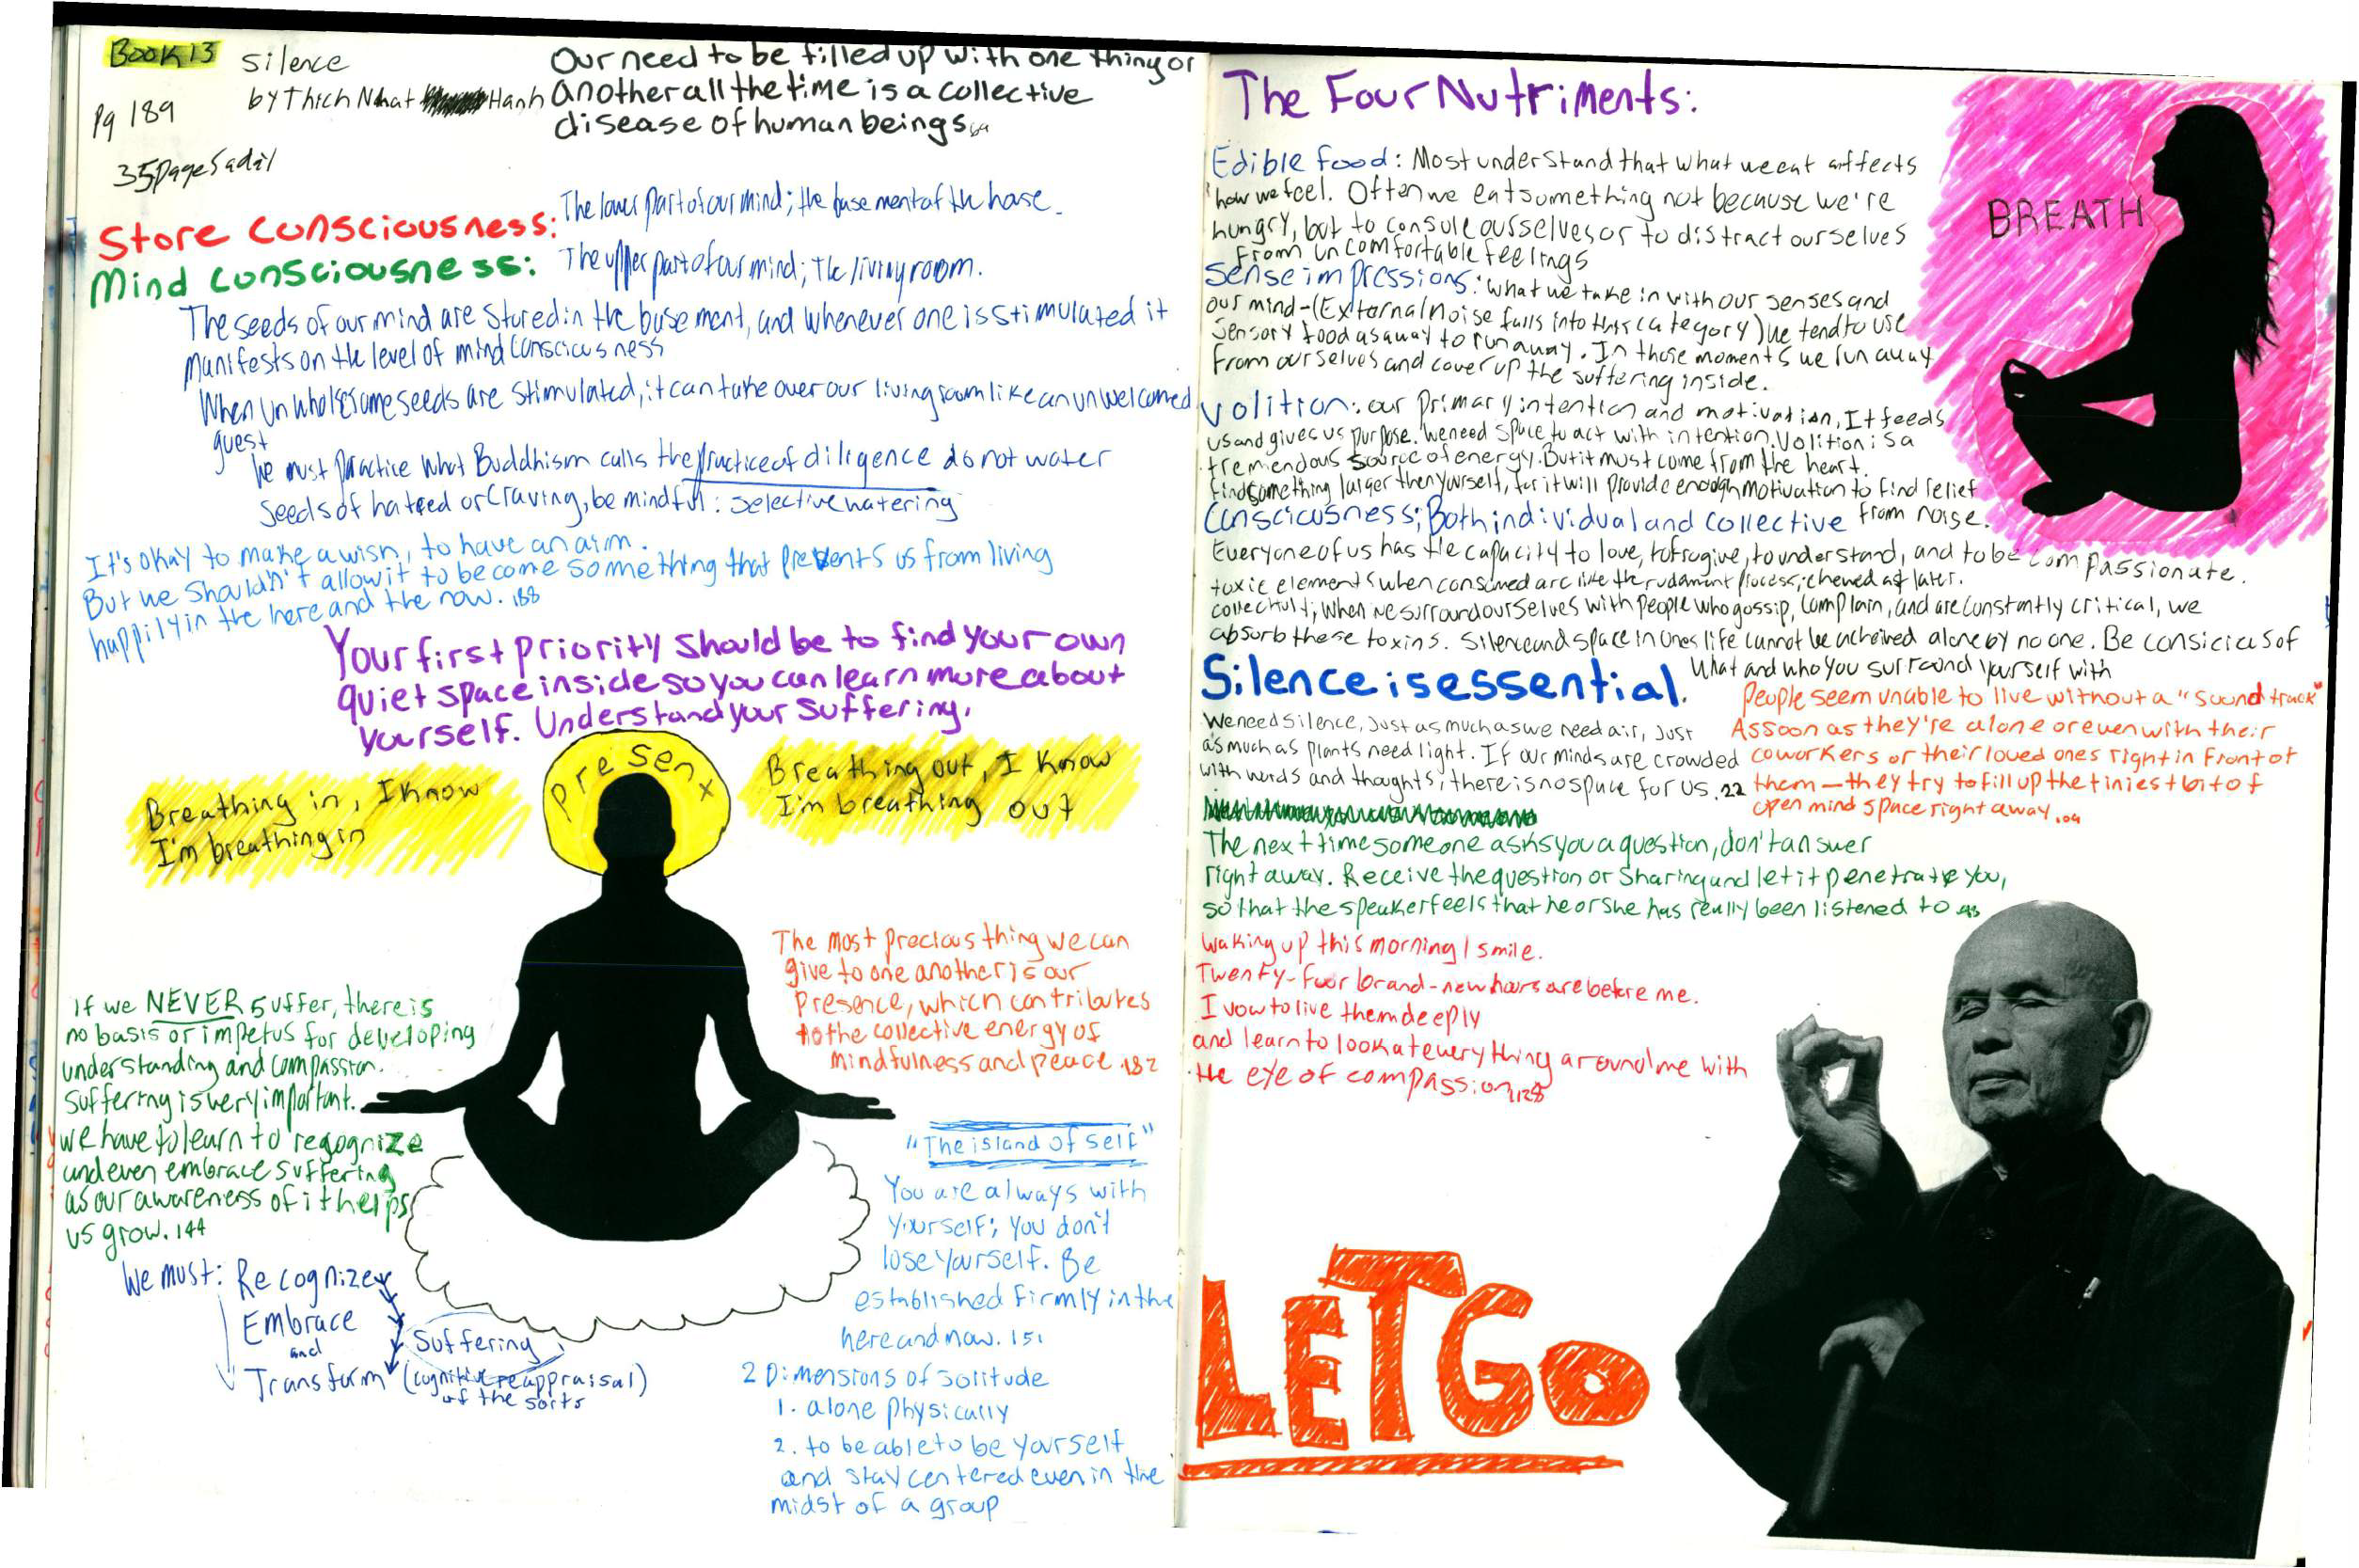 BOOK 13
Silence
by Thich Nhat Hanh
Pg 189
35 pages a day
Our need to be filled up with one thing or
another all the time is a collective
disease of human beings
Store Consciousness:
The lower part of our mind; the basement of the house.
Mind Consciousness:
The upper part of our mind; The living room.
The seeds of our mind are stored in the basement, and whenever one is stimulated it
manifests on the level of mind consciousness
When unwholesome seeds are stimulated, it can take over our living room like an unwelcomed
guest
We must practice what Buddhism calls the practice of diligence do not water
seeds of hatred or craving, be mindful: selective watering
It's okay to make a wish, to have an aim.
But we shouldn't allow it to become something that prevents us from living
happily in the here and the now. 188
Your first priority should be to find your own
quiet space inside so you can learn more about
yourself. Understand your suffering.
Breathing in, I know
I'm breathing in
Present
Breathing out, I know
I'm breathing out
If we NEVER suffer, there is
no basis or impetus for developing
understanding and compassion.
Suffering is very important.
we have to learn to recognize
and even embrace suffering
as our awareness of it helps
us grow. 144
We must: Recognize
Embrace
and
Transform
Suffering
(cognitive reappraisal)
of the sorts
The most precious thing we can
give to one another is our
presence, which contributes
to the collective energy of
mindfulness and peace. 182
"The island of self"
You are always with
yourself; you don't
lose yourself. Be
established firmly in the
here and now. 151
2 Dimensions of solitude
1. alone physically
2. to be able to be yourself
and stay centered even in the
midst of a group
The Four Nutriments:
Edible food: Most understand that what we eat affects
how we feel. Often we eat something not because we're
hungry, but to console ourselves or to distract ourselves
From uncomfortable feelings
Sense impressions: what we take in with our senses and
our mind - (External noise falls into this category) we tend to use
Sensory food as a way to run away. In those moments we run away
from ourselves and cover up the suffering inside.
Volition: our primary intention and motivation, It feeds
us and gives us purpose. We need space to act with intention. Volition is a
tremendous source of energy. But it must come from the heart.
find something larger then yourself, for it will provide enough motivation to find relief
from noise.
Consciousness; Both individual and collective
Everyone of us has the capacity to love, to frogive, to understand, and to be compassionate.
toxic elements when consumed are like the process; chewed later.
; When we surround ourselves with people who gossip, complain, and are constantly critical, we
absorb these toxins. Silence and space in ones life cannot be alone by no one. Be consicius of
what and who you surround yourself with
BREATH
Silence is essential.
We need silence, just as much as we need air, just
as much as plants need light. If our minds are crowded
with words and thoughts, there is no space for us. 22
People seem unable to live without a "sound track"
As soon as they're alone or even with their
coworkers or their loved ones right in front of
them — they try to fill up the tiniest bit of
open mind space right away.
The next time someone asks you a question, don't answer
right away. Receive the question or sharing and let it penetrate you,
so that the speaker feels that he or she has really been listened to
Waking up this morning I smile.
Twenty-four brand-new hours are before me.
I vow to live them deeply
and learn to look at everything around me with
the eye of compassion
LET GO